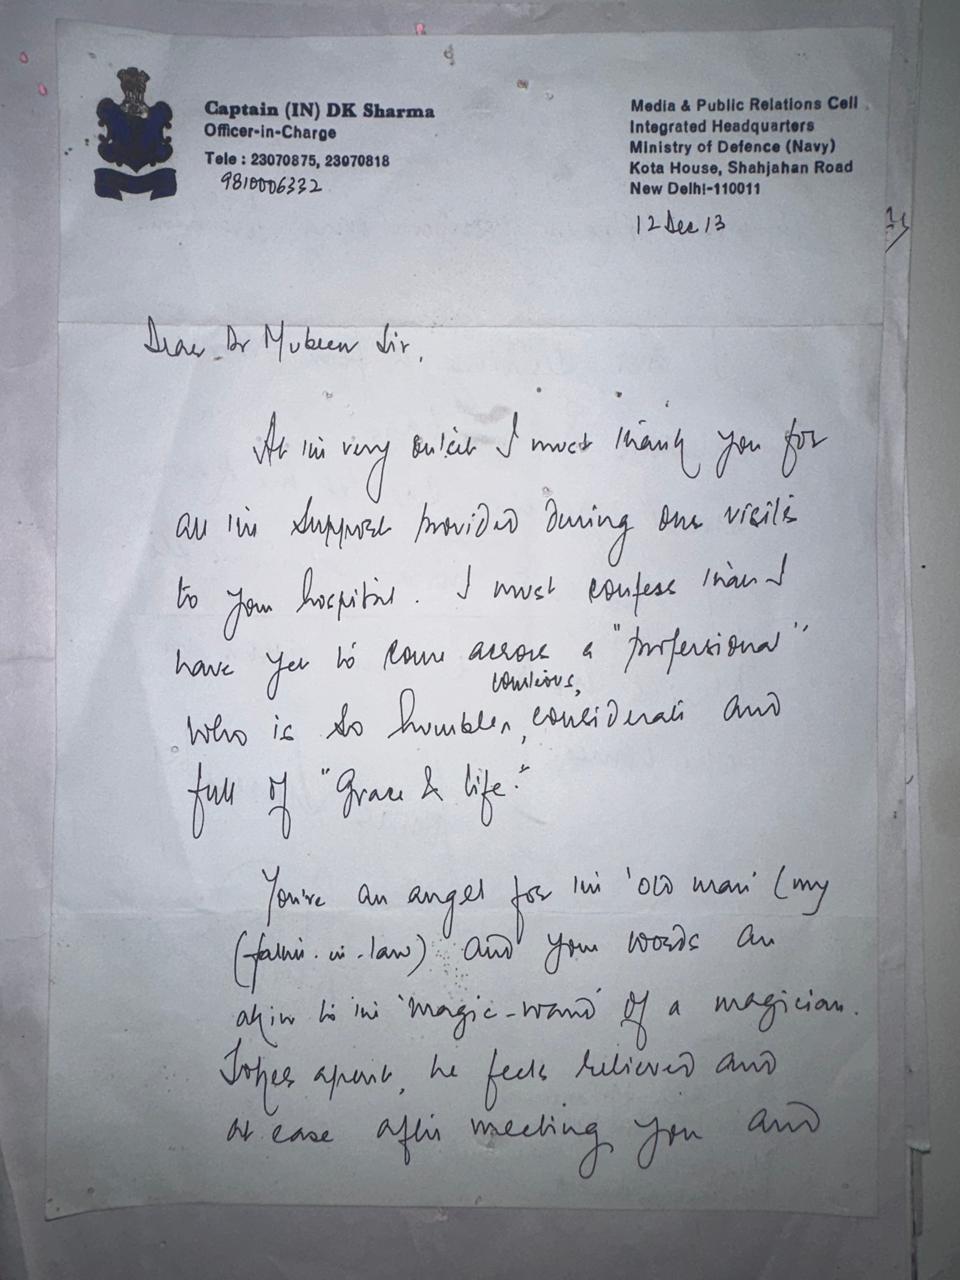 Captain (IN) DK Sharma
Officer-in-Charge
Tele : 23070875, 23070818
9810006332
Media & Public Relations Cell
Integrated Headquarters
Ministry of Defence (Navy)
Kota House, Shahjahan Road
New Delhi-110011
12 Dec 13
Dear Dr Mubeen Sir,
At the very outset I must thank you for
all the support provided during our visits
to your hospital. I must confess that I
have yet to come across a "professional"
who is so humble, courteous, considerate and
full of "Grace & life."
You're an angel for the 'old man' (my
(father-in-law) and your words are
akin to the 'magic-wand' of a magician.
Jokes apart, he feels relieved and
at ease after meeting you and